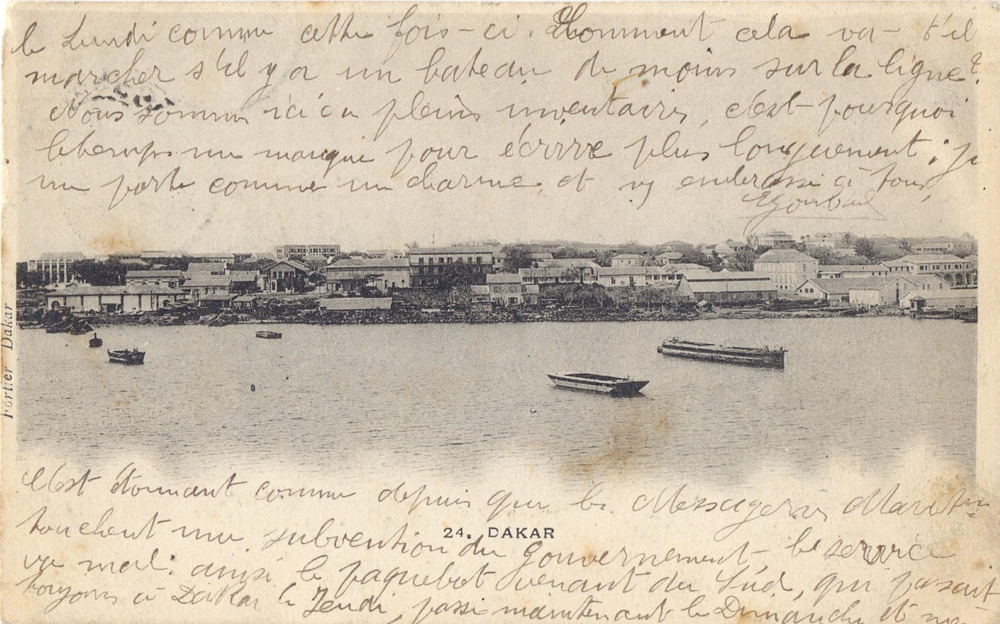 le Lundi comme cette fois-ci. Comment cela va-t'il
marcher s'il y a un bateau de moins sur la ligne?
Nous sommes ici en pleins inventaires, c'est pourquoi
le temps me manque pour écrire plus longuement; je
me porte comme un charme, et vs embrasse à tous,
Fortier Dakar
C'est étonnant comme depuis que les Messageries Maritimes
24. DAKAR
touchent une subvention du gouvernement le service
va mal: ainsi le paquebot venant du Sud, qui passait
toujours à Dakar le Jeudi, passe maintenant le Dimanche et